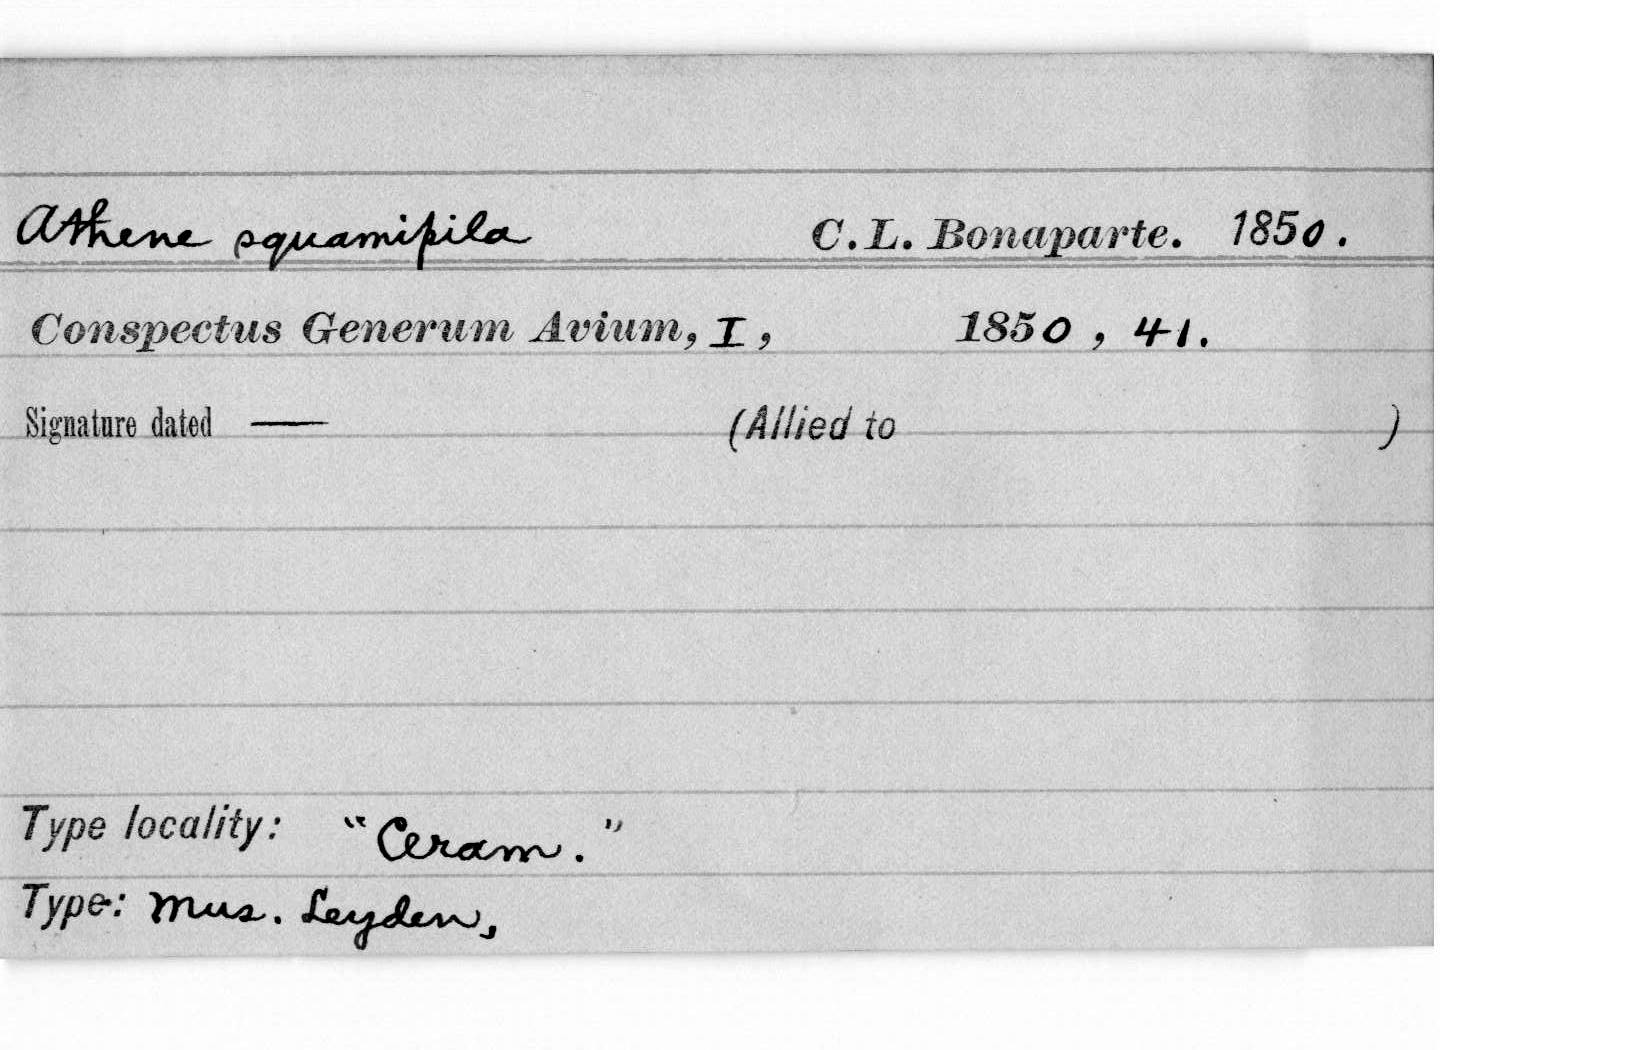 Athene squamipila C. L. Bonaparte. 1850.
Conspectus Generum Avium, I, 1850, 41.
Signature dated — (Allied to )
Type locality: "Ceram."
Type: Mus. Leyden,